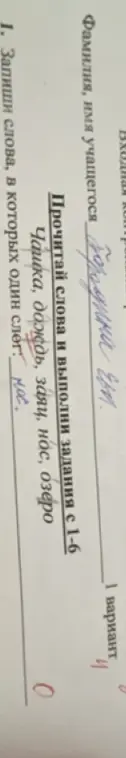 Входная
Фамилия, имя учащегося
I вариант
Прочитай слова и выполни задания с 1-6
Чашка, дождь, заяц, нос, озеро
1. Запиши слова, в которых один слог. нос.